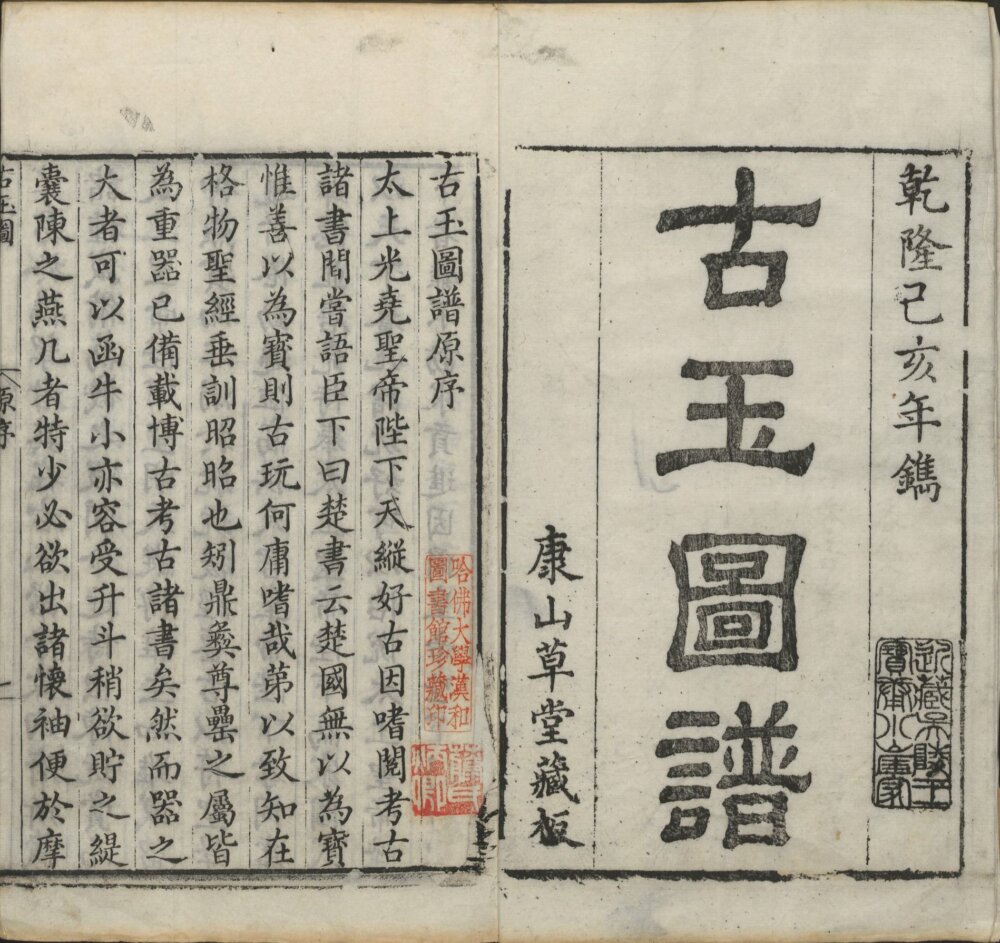 乾隆己亥年鐫
古玉圖譜
康山草堂藏板
古玉圖譜原序
太上光堯聖帝陛下天縱好古因嗜閱考古
諸書間嘗語臣下曰楚書云楚國無以為寶
惟善以為寶則古玩何庸嗜哉第以致知在
格物聖經垂訓昭昭也矧鼎彝尊罍之屬皆
為重器已備載博古考古諸書矣然而器之
大者可以函牛小亦容受升斗稍欲貯之緹
囊陳之燕几者特少必欲出諸懷袖便於摩
古玉圖
原序
一
哈佛大學漢和
圖書館珍藏印